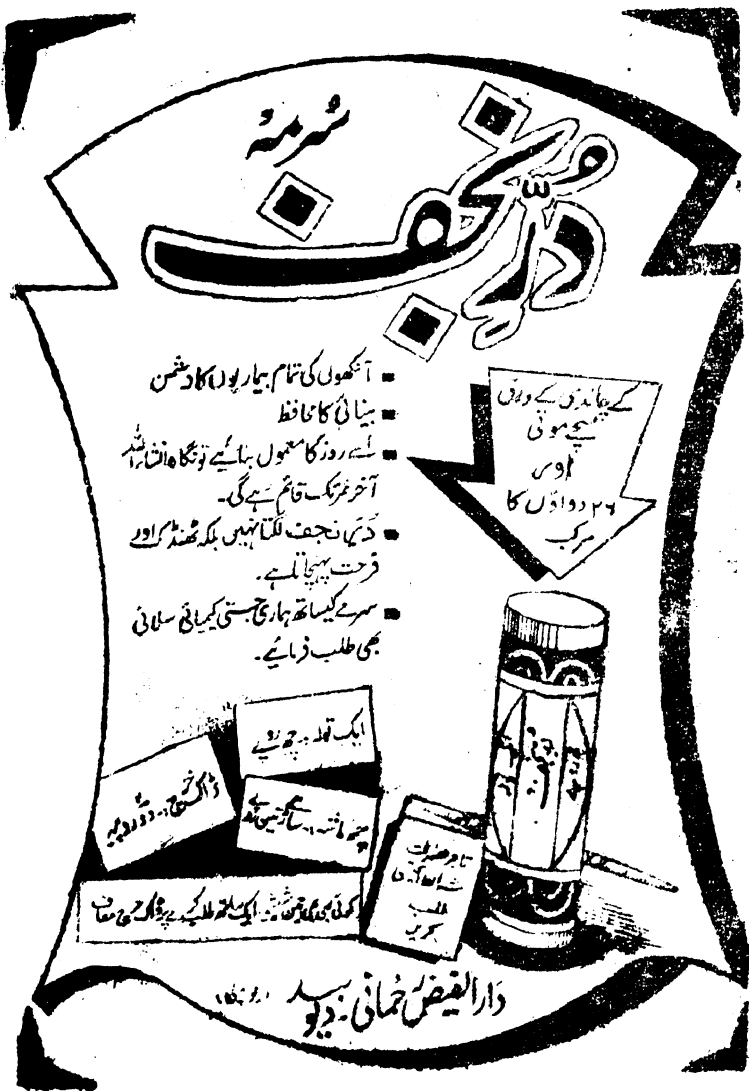 سُرمہ
دُرِّ نجف
آنکھوں کی تمام بیماریوں کا دشمن
بینائی کا محافظ
اسے روز کا معمول بنائیے تو نگاہ انشاء اللہ
آخر عمر تک قائم رہے گی۔
دُرِّ نجف لگتا نہیں بلکہ ٹھنڈک اور
فرحت پہنچاتا ہے۔
سرمے کیساتھ ہماری جستی کیمیائی سلائی
بھی طلب فرمائیے۔
کے چاندی کے ورق
سچے موتی
اور
۲۶ دواؤں کا
مرکب
ایک تولہ :۔ چھ روپے
ڈاک خرچ :۔ دو روپیہ
چھ ماشہ :۔ ساڑھے تین روپے
کوئی سی بھی تین شیشی ایک ساتھ طلب کرنے پر ڈاک خرچ معاف
تاجر حضرات
طلب
کریں
دَارُ الفیض رحمانی۔ دیوبند (یو، پی)